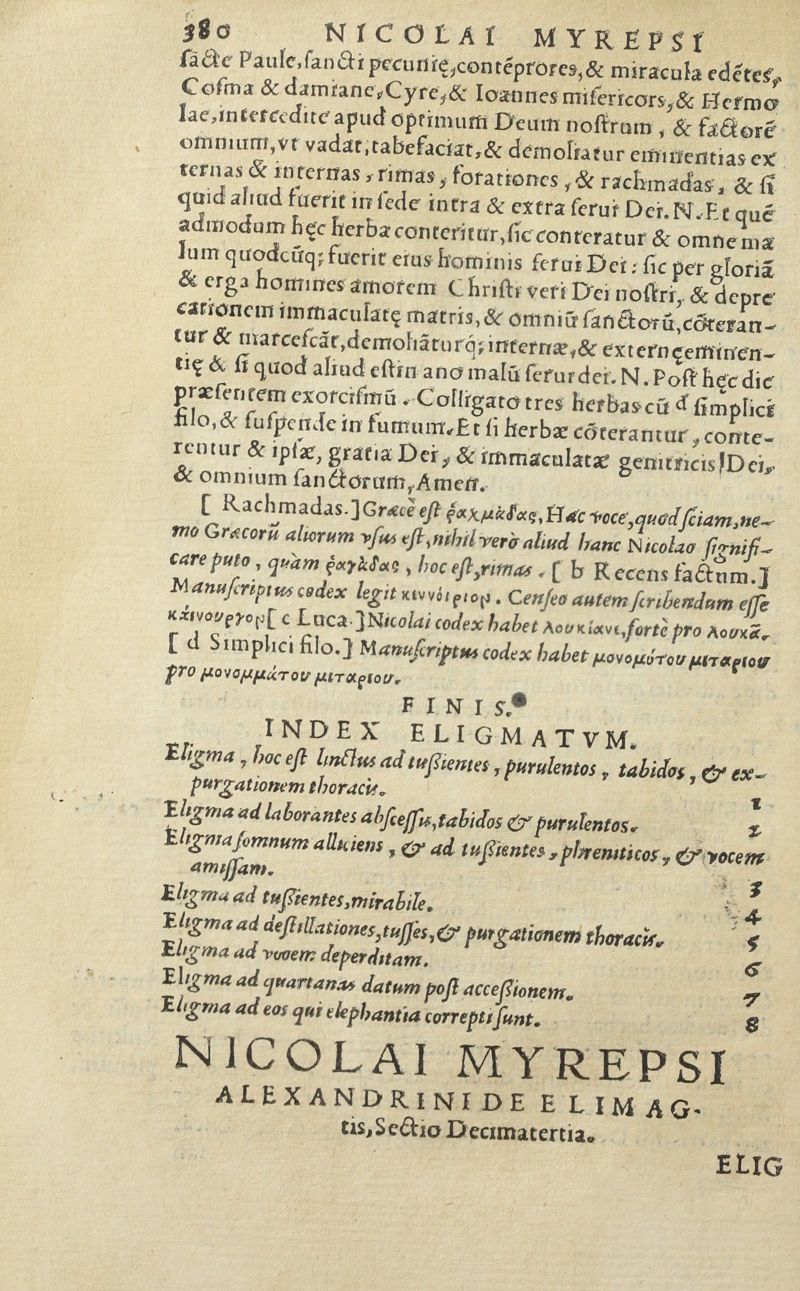 380 NICOLAI MYREPSI
fácte Paule, sancti pecunię, contẽptores, & miracula edẽtes,
Cosma & damiane, Cyre, & Ioannes misericors, & Hermo
lae, intercedite apud optimum Deum nostrum, & factorẽ
omnium, vt vadat, tabefaciat, & demoliatur eminentias ex
ternas & internas, rimas, forationes, & rachmadas, & si
quid aliud fuerit in sede intra & extra serui Dei. N. Et quẽ
admodum hęc herba conteritur, sic conteratur & omne ma
lum quodcũq; fuerit eius hominis serui Dei: sic per gloriã
& erga homines amorem Christi veri Dei nostri, & depre
cationem immaculatę matris, & omniũ sanctorũ, cõteran-
tur & marcescãt, demoliãturq; internæ, & externę eminen-
tię & si quod aliud est in ano malũ serui dei. N. Post hęc dic
præsentem exorcismũ. Colligato tres herbas cũ d simplici
filo, & suspende in fumum. Et si herbæ cõterantur, conte-
rentur & ipsæ, gratia Dei, & immaculatæ genitricis Dei,
& omnium sanctorum, Amen.
[ Rachmadas.] Græcè est ῥαχμάδας, Hac voce, quod sciam, ne-
mo Græcorũ aliorum vsus est, nihil verò aliud hanc Nicolao signifi-
care puto, quàm ῥαγάδας, hoc est, rimas. [ b Recens factum.]
Manuscriptus codex legit κιννόιριορ. Censeo autem scribendum esse
κάινουργορ [ c Luca.] Nicolai codex habet λουκίανι, fortè pro λουκᾶ.
[ d Simplici filo.] Manuscriptus codex habet μονομύτου μιταριου
pro μονομμάτου μιταριου.
FINIS.
INDEX ELIGMATVM.
Eligma, hoc est linctus ad tußientes, purulentos, tabidos, & ex-
purgationem thoracis. 1
Eligma ad laborantes abscessu, tabidos & purulentos. 2
Eligma somnum alliciens, & ad tußientes, phreniticos, & vocem
amissam. 3
Eligma ad tußientes, mirabile. 4
Eligma ad destillationes, tusses, & purgationem thoracis. 5
Eligma ad vocem deperditam. 6
Eligma ad quartanas datum post acceßionem. 7
Eligma ad eos qui elephantia correpti sunt. 8
NICOLAI MYREPSI
ALEXANDRINI DE ELIMAG-
tis, Sectio Decimatertia.
ELIG